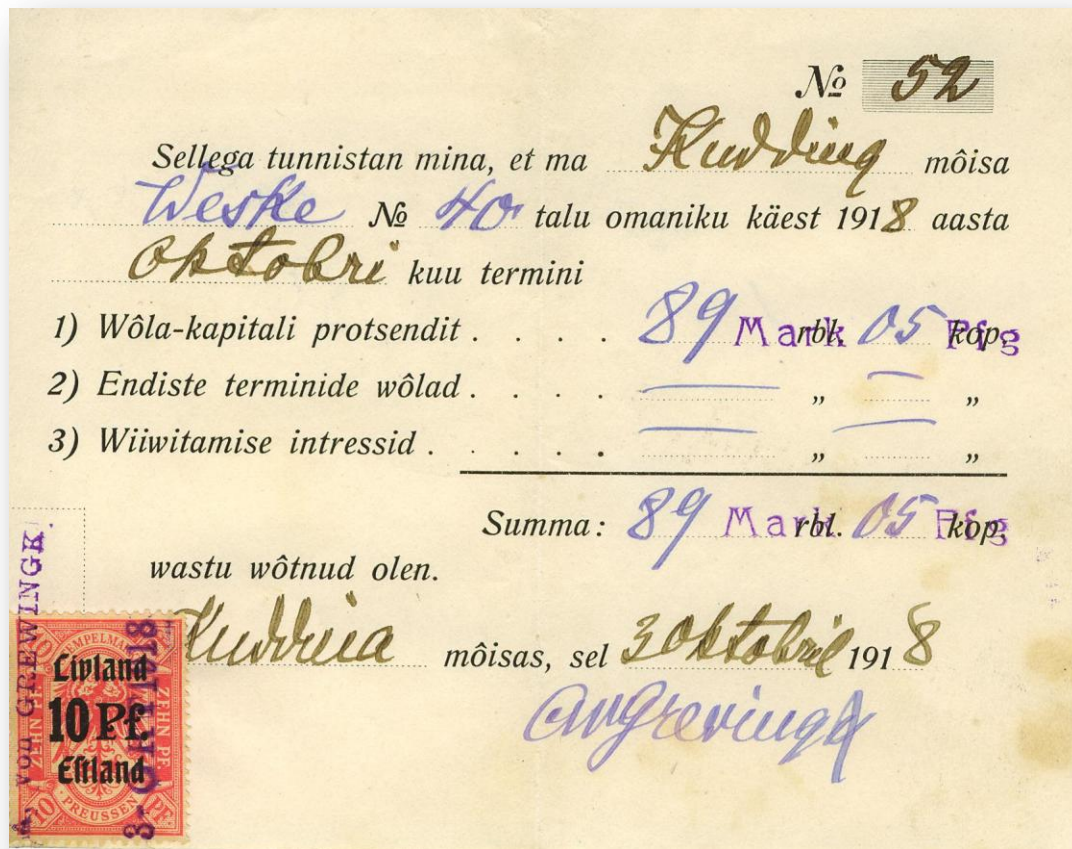 № 52
Sellega tunnistan mina, et ma Kudding môisa
Weske № 40 talu omaniku käest 1918 aasta
Oktobri kuu termini
1) Wôla-kapitali protsendit . . . . 89 Mark rbl. 05 Pfg kop.
2) Endiste terminide wôlad . . . . „ „
3) Wiiwitamise intressid . . . . . „ „
Summa: 89 Mark rbl. 05 Pfg kop.
wastu wôtnud olen.
Kuddina môisas, sel 3 Oktobril 1918
von GREWINGK.
STEMPELMARKE
ZEHN PF.
ZEHN PF.
10
Livland
10 Pf.
Estland
PREUSSEN
10
PF.